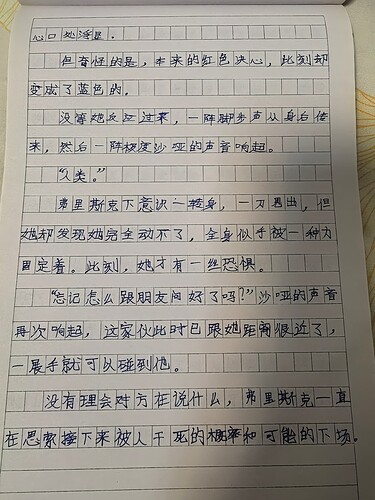 心口处浮显。
但奇怪的是，本来的红色决心，此刻却
变成了蓝色的。
没等她反应过来，一阵脚步声从身后传
来，然后一阵极度沙哑的声音响起。
“人类。”
弗里斯克下意识一转身，一刀甩出，但
她却发现她完全动不了，全身似乎被一种力
固定着。此刻，她才有一丝恐惧。
“忘记怎么跟朋友问好了吗？”沙哑的声音
再次响起，这家伙此时已跟她距离很近了，
一展手就可以碰到他。
没有理会对方在说什么，弗里斯克一直
在思索接下来被人干死的概率和可能的下场。